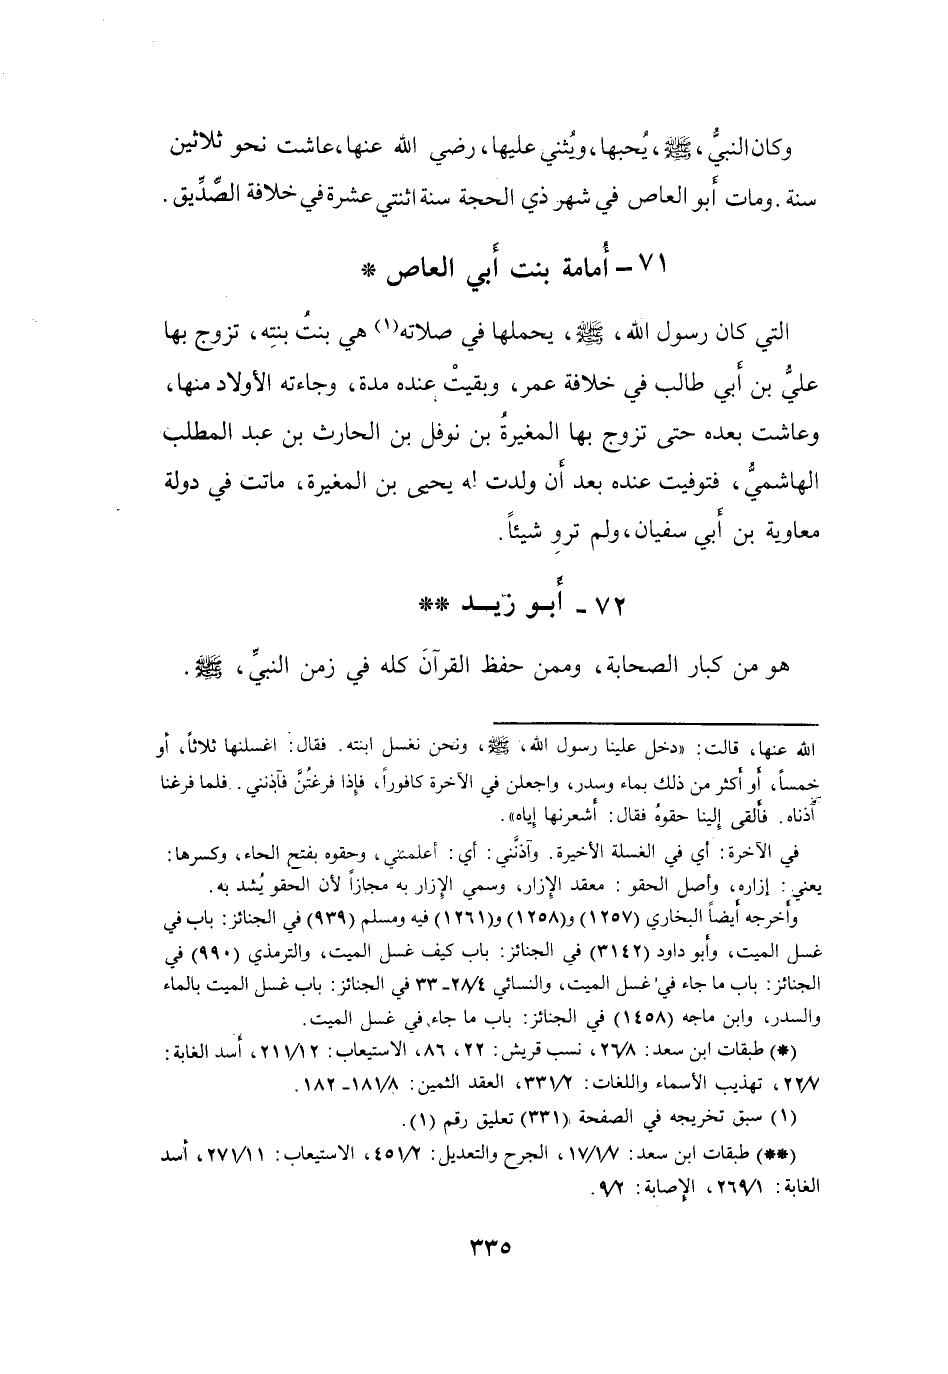 وكان النبيُّ، ﷺ، يُحبها، ويُثني عليها، رضي الله عنها، عاشت نحو ثلاثين
سنة. ومات أَبو العاص في شهر ذي الحجة سنة اثنتي عشرة في خلافة الصِّدِّيق.
٧١ - أُمامة بنت أَبي العاص *
التي كان رسول الله، ﷺ، يحملها في صلاته(١) هي بنتُ بنتِه، تزوج بها
عليُّ بن أَبي طالب في خلافة عمر، وبقيتْ عنده مدة، وجاءته الأولاد منها،
وعاشت بعده حتى تزوج بها المغيرةُ بن نوفل بن الحارث بن عبد المطلب
الهاشميُّ، فتوفيت عنده بعد أَن ولدت له يحيى بن المغيرة، ماتت في دولة
معاوية بن أَبي سفيان، ولم تروِ شيئاً.
٧٢ - أَبو زيد **
هو من كبار الصحابة، وممن حفظ القرآنَ كله في زمن النبيِّ، ﷺ.
الله عنها، قالت: «دخل علينا رسول الله، ﷺ، ونحن نغسل ابنته. فقال: اغسلنها ثلاثاً، أو
خمساً، أَو أَكثر من ذلك بماء وسدر، واجعلن في الآخرة كافوراً، فإذا فرغتُنَّ فآذنني. . فلما فرغنا
آذناه. فألقى إلينا حقوهُ فقال: أَشعرنها إياه».
في الآخرة: أي في الغسلة الأخيرة. وآذنَّني: أي: أعلمنني، وحقوه بفتح الحاء، وكسرها:
يعني: إزاره، وأصل الحقو: معقد الإزار، وسمي الإزار به مجازاً لأن الحقو يُشد به.
وأخرجه أيضاً البخاري (١٢٥٧) و(١٢٥٨) و(١٢٦١) فيه ومسلم (٩٣٩) في الجنائز: باب في
غسل الميت، وأبو داود (٣١٤٢) في الجنائز: باب كيف غسل الميت، والترمذي (٩٩٠) في
الجنائز: باب ما جاء في غسل الميت، والنسائي ٢٨/٤ - ٣٣ في الجنائز: باب غسل الميت بالماء
والسدر، وابن ماجه (١٤٥٨) في الجنائز: باب ما جاء في غسل الميت.
(*) طبقات ابن سعد: ٢٦/٨، نسب قريش: ٢٢، ٨٦، الاستيعاب: ٢١١/١٢، أسد الغابة:
٢٢/٧، تهذيب الأسماء واللغات: ٣٣١/٢، العقد الثمين: ١٨١/٨ - ١٨٢.
(١) سبق تخريجه في الصفحة (٣٣١) تعليق رقم (١).
(**) طبقات ابن سعد: ١٧/١/٧، الجرح والتعديل: ٤٥١/٢، الاستيعاب: ٢٧١/١١، أسد
الغابة: ٢٦٩/١، الإصابة: ٩/٢.
٣٣٥